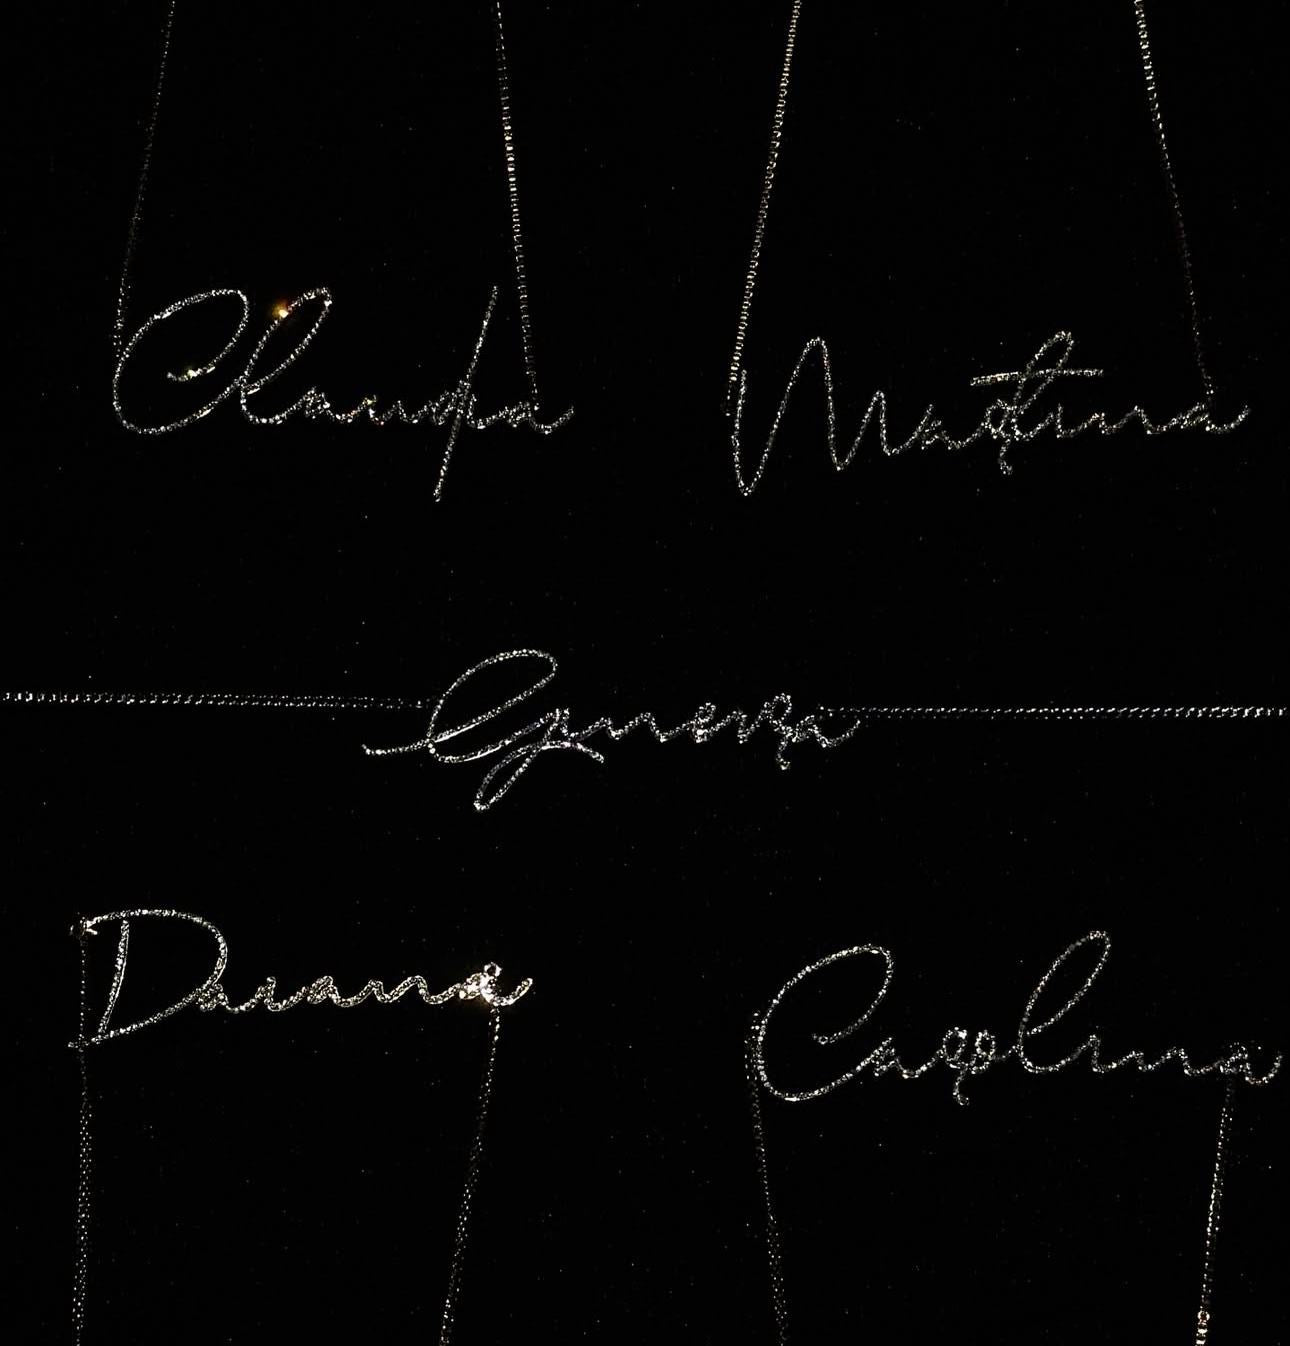 Claudia
Martina
Ginevra
Daiana
Carolina